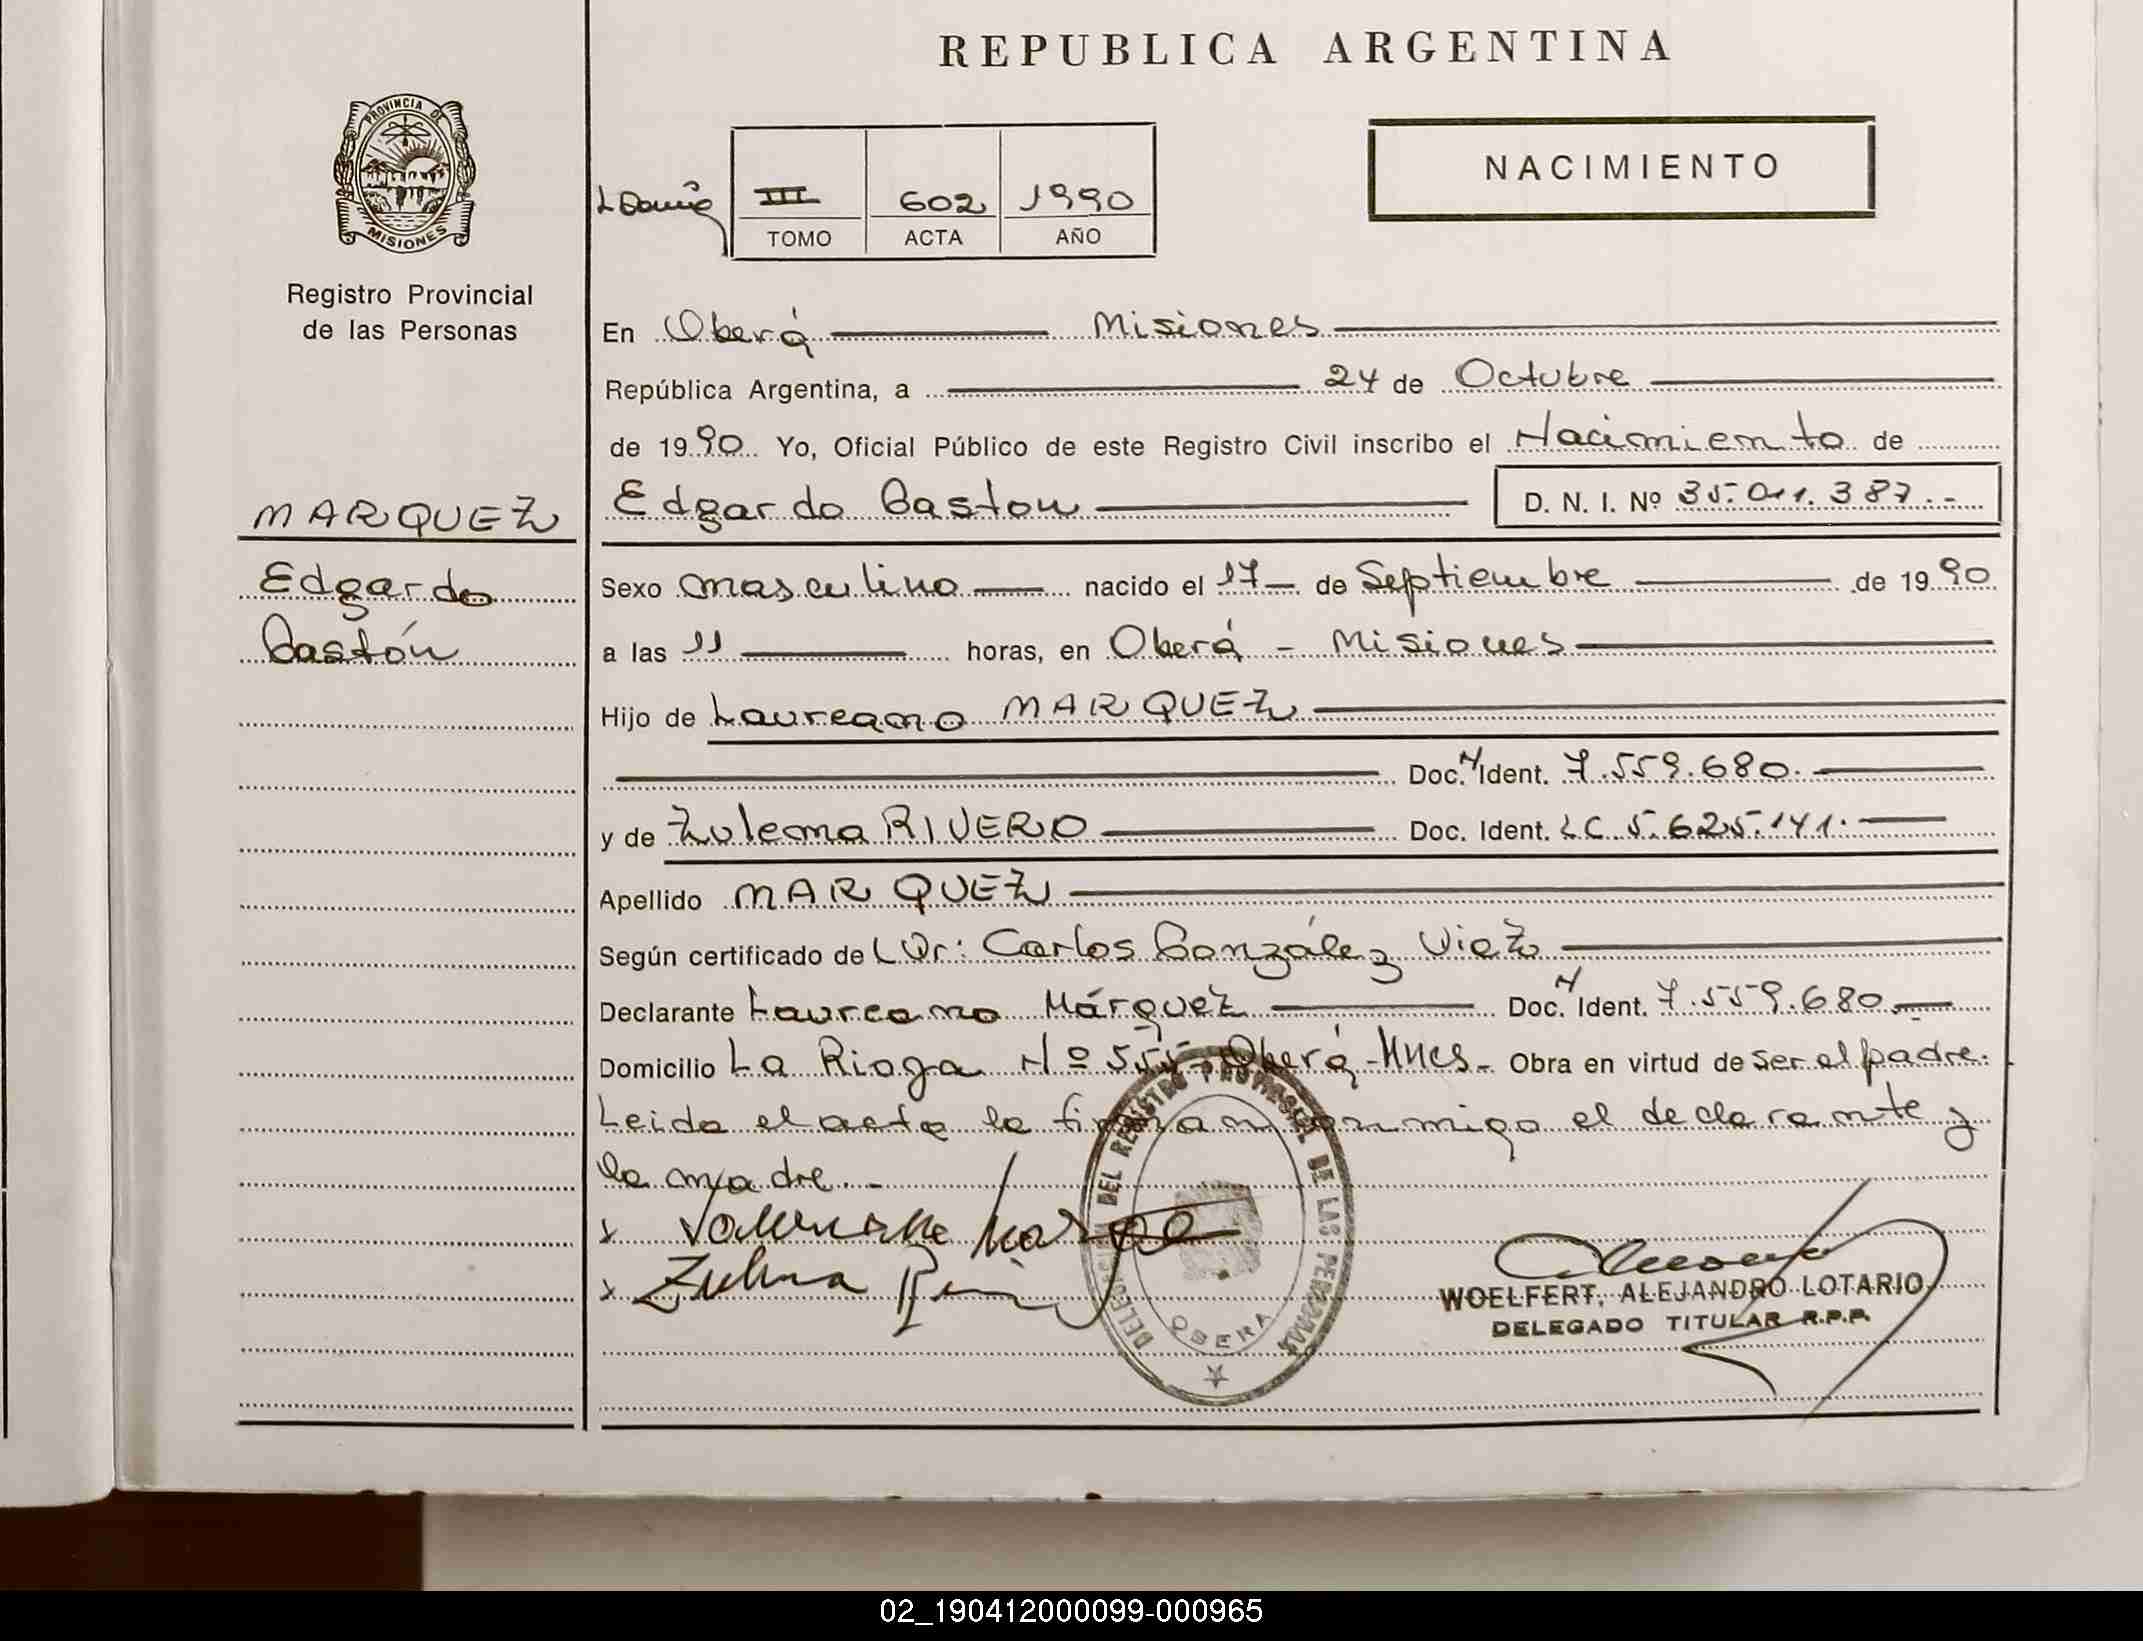 REPUBLICA ARGENTINA
PROVINCIA DE
MISIONES
Registro Provincial
de las Personas
NACIMIENTO
III 602 1990
TOMO ACTA AÑO
En Oberá Misiones
República Argentina, a 24 de Octubre
de 1990. Yo, Oficial Público de este Registro Civil inscribo el Nacimiento de
MARQUEZ
Edgardo Gastón
Edgardo Gaston D. N. I. Nº 35.011.387.-
Sexo masculino nacido el 17 de Septiembre de 1990
a las 11 horas, en Oberá - Misiones
Hijo de Laureano MARQUEZ
Doc. N Ident. 7.559.680.
y de Zulema RIVERO Doc. Ident. LC 5.625.141.
Apellido MARQUEZ
Según certificado de Dr: Carlos González Viez
Declarante Laureano Márquez Doc. N Ident. 7.559.680
Domicilio La Rioja Nº 555- Oberá -Mnes- Obra en virtud de ser el padre.
Leida el acta la firman conmigo el declarante y
la madre.-
DELEGACIÓN DEL REGISTRO PROVINCIAL DE LAS PERSONAS
OBERA
WOELFERT, ALEJANDRO LOTARIO
DELEGADO TITULAR R.P.P.
02_190412000099-000965